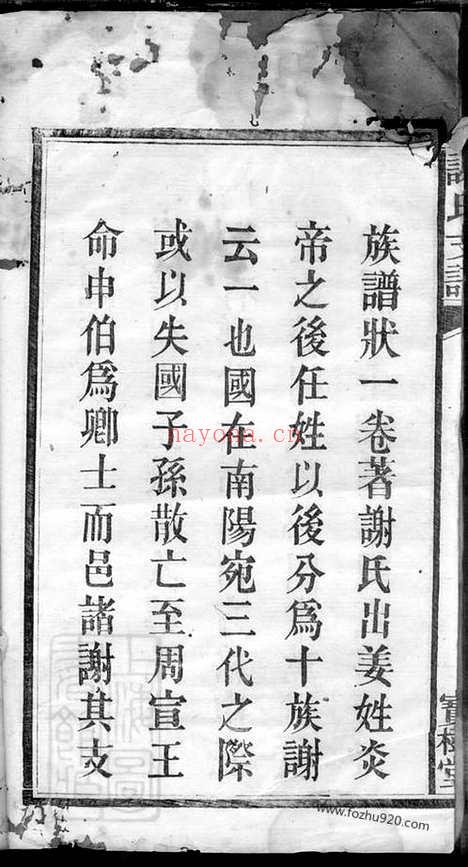 族譜狀一卷著謝氏出姜姓炎
帝之後任姓以後分爲十族謝
云一也國在南陽宛三代之際
或以失國子孫散亡至周宣王
命申伯爲卿士而邑諸謝其支
謝氏支譜
寶樹堂
nayona.cn
www.fozhu920.com